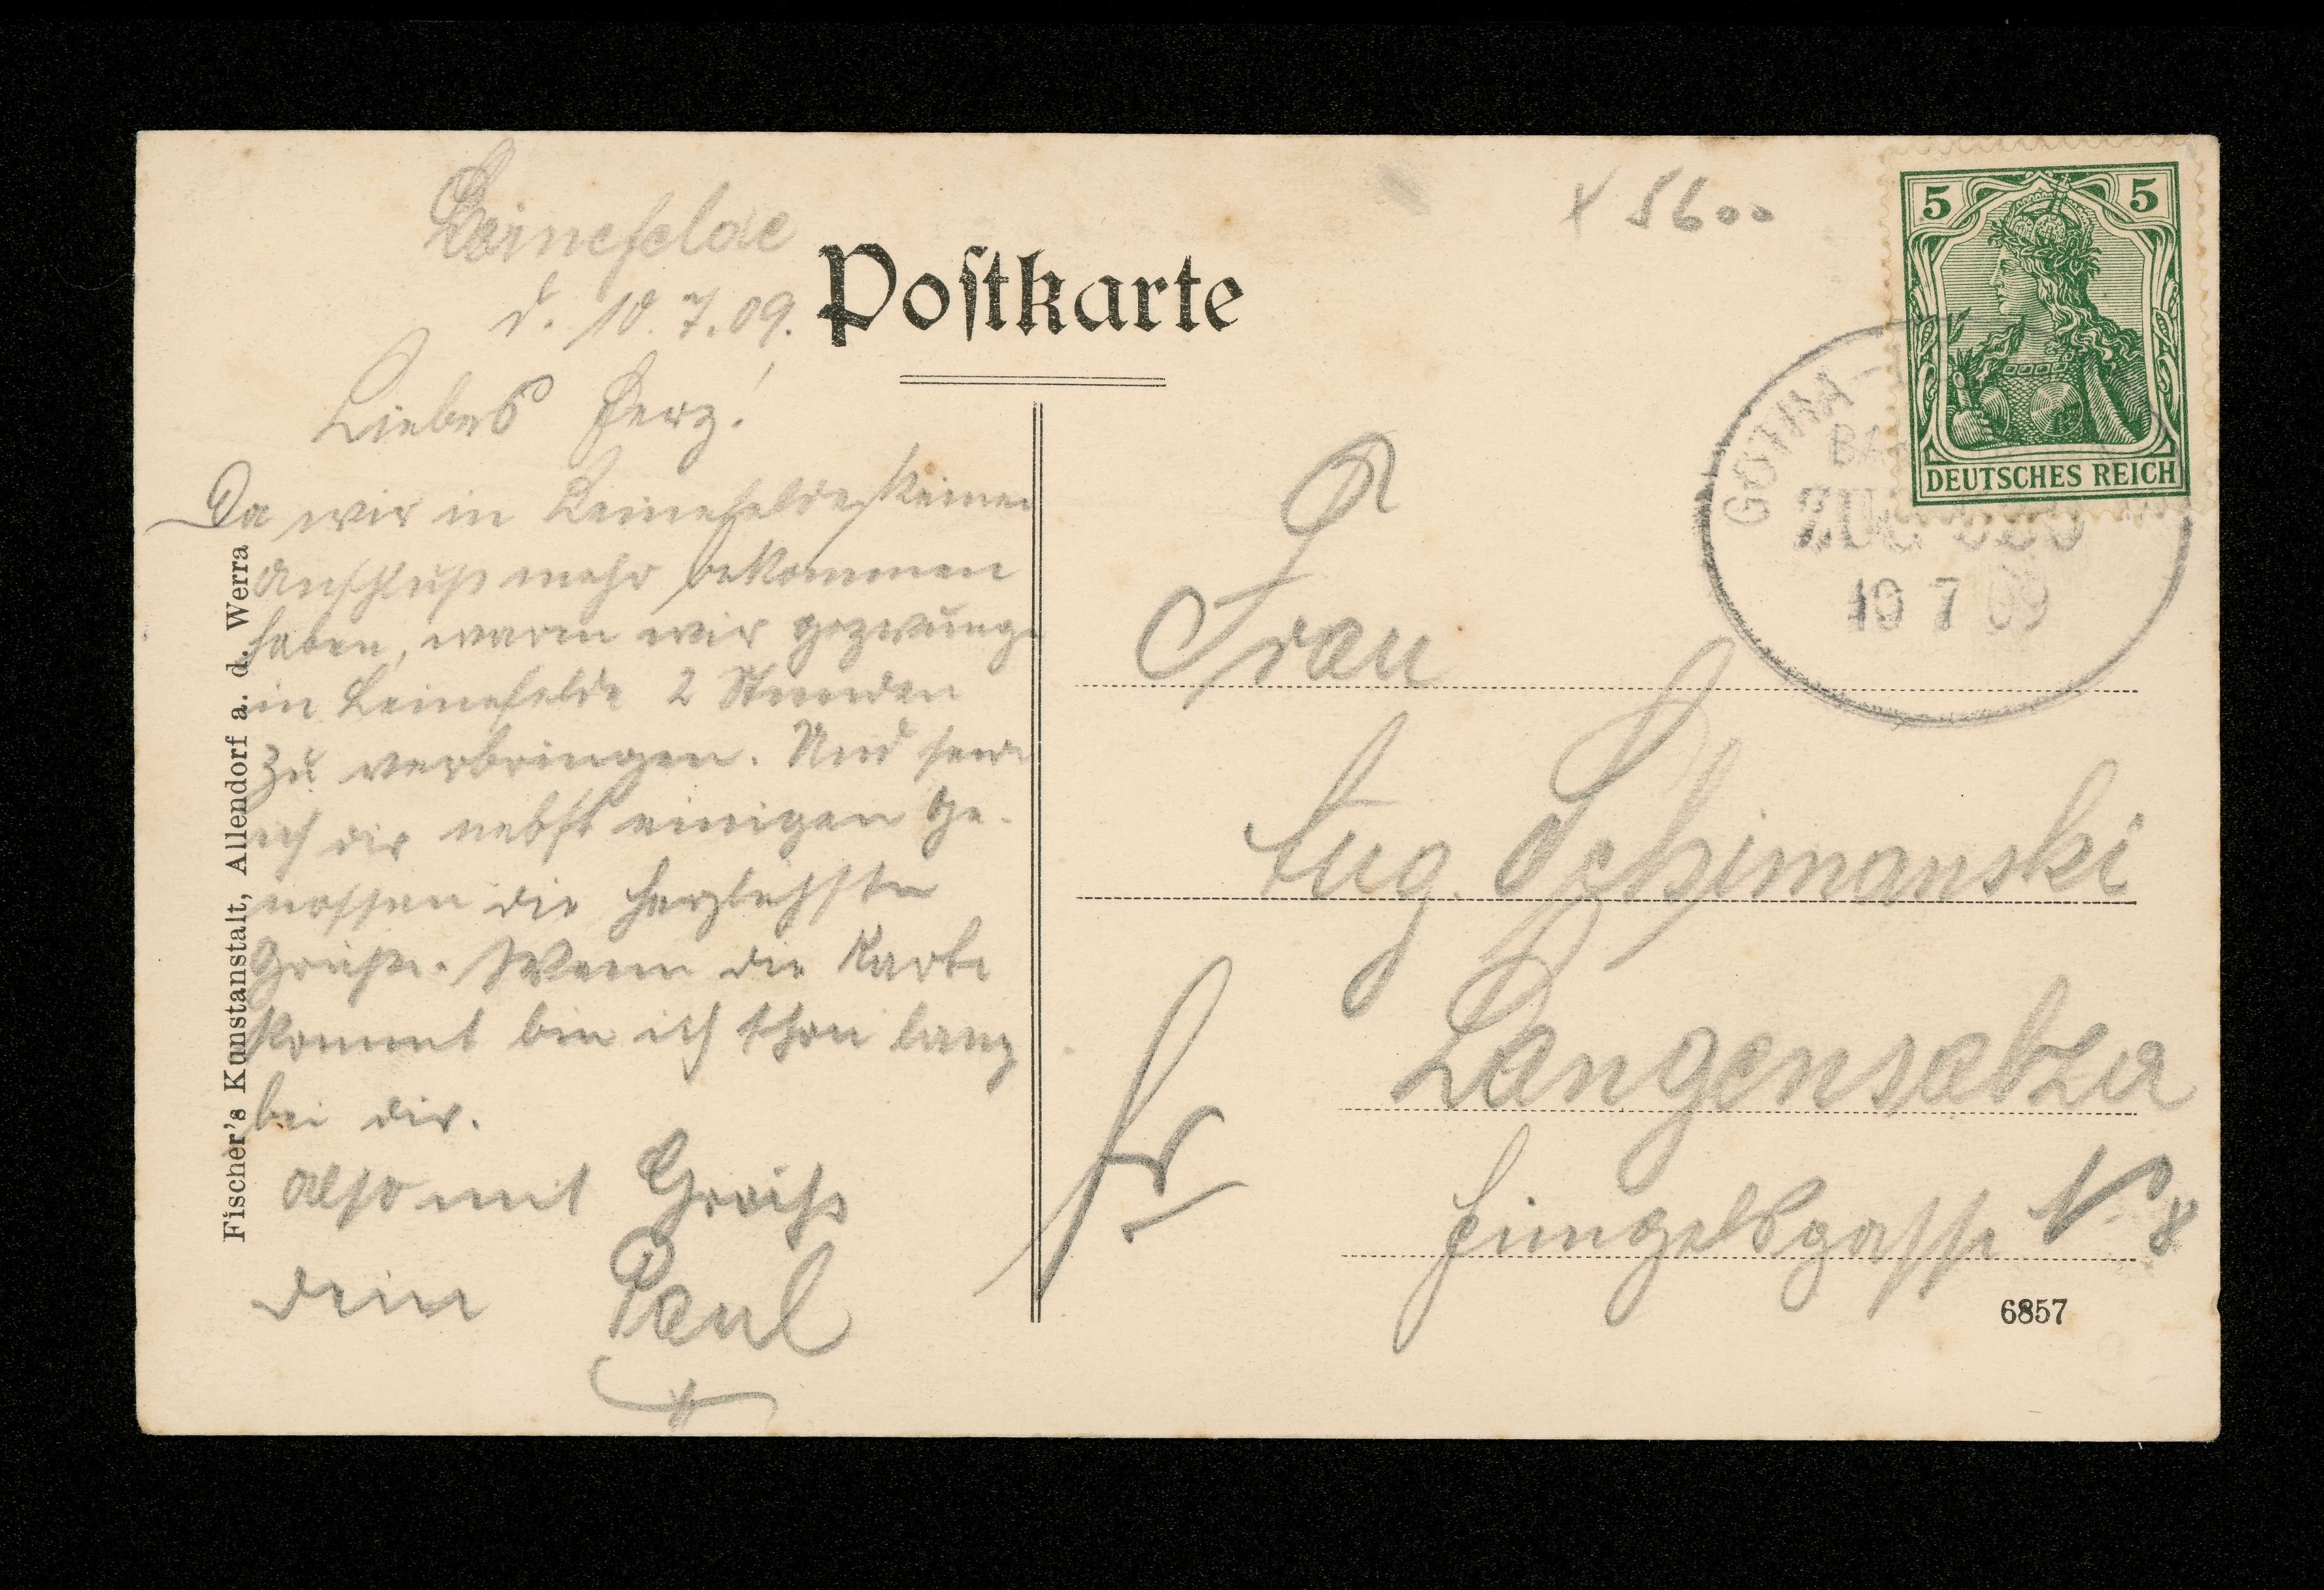 Leinefelde
d. 10.7.09.
Postkarte
Liebes Herz!
Da wir in Leinefelde keinen
Anschluß mehr bekommen
haben, waren wir gezwung.
in Leinefelde 2 Stunden
zu verbringen. Und sende
ich dir nebst einigen Ge-
nossen die herzlichsten
Grüße. Wenn die Karte
kommt bin ich schon lang
bei dir.
Also mit Gruß
dein Paul
Fischer's Kunstanstalt, Allendorf a. d. Werra
x 5600
5 5
DEUTSCHES REICH
GOTHA-
ZUG
10 7 09
Frau
Aug. Schimanski
Langensalza
Hüngelsgasse N 8
6857